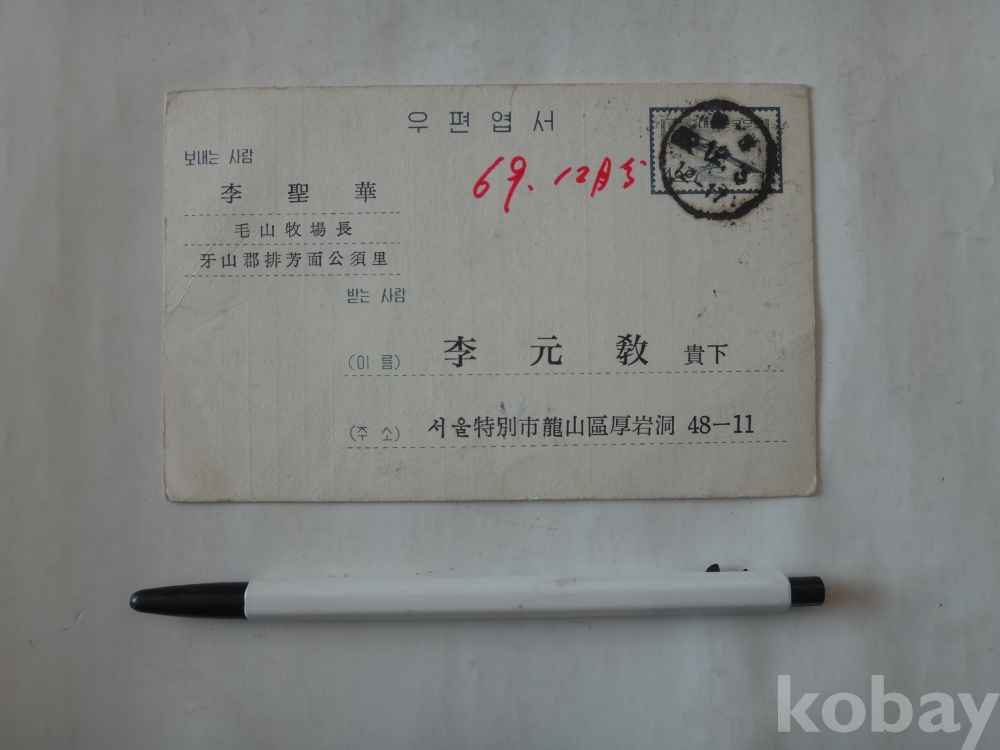 우편엽서
보내는 사람
69. 12月 5
李聖華
毛山牧場長
牙山郡排芳面公須里
받는 사람
(이름) 李元敎 貴下
(주소) 서울特別市龍山區厚岩洞 48-11
kobay